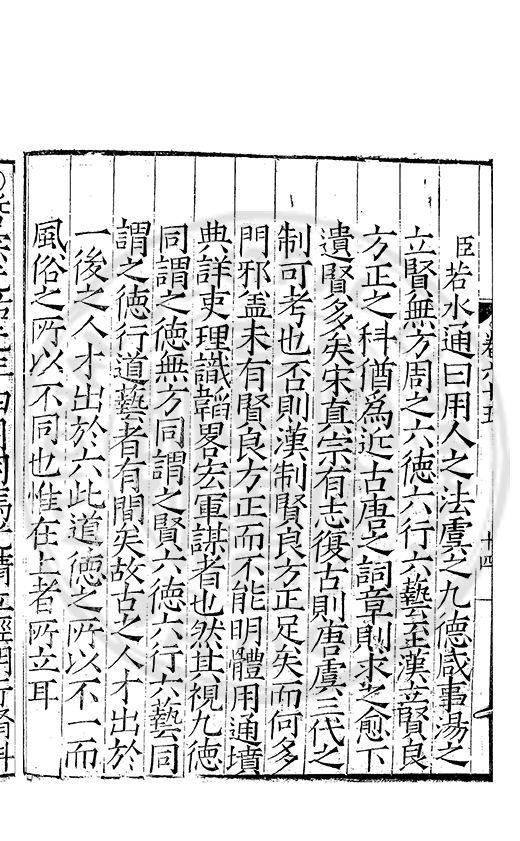 臣若水通曰用人之法虞之九德咸事湯之
立賢無方周之六德六行六藝至漢立賢良
方正之科猶爲近古唐之詞章則求之愈下
遺賢多矣宋真宗有志復古則唐虞三代之
制可考也否則漢制賢良方正足矣而何多
門邪葢未有賢良方正而不能明體用通墳
典詳吏理識韜畧宏軍謀者也然其視九德
同謂之德無方同謂之賢六德六行六藝同
謂之德行道藝者有間矣故古之人才出於
一後之人才出於六此道德之所以不一而
風俗之所以不同也惟在上者所立耳
卷六十五
十四